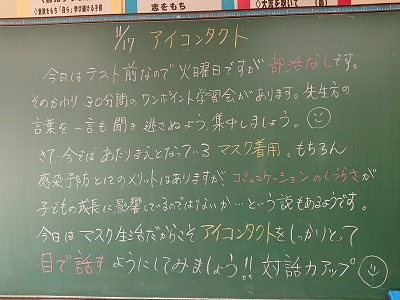 志をもち
11/17 アイコンタクト
今日はテスト前なので火曜日ですが部活なしです。
そのかわり30分間のワンポイント学習会があります。先生方の
言葉を一言も聞き逃さぬよう、集中しましょう。
さて、今ではあたりまえとなっているマスク着用。もちろん
感染予防としてのメリットはありますが、コミュニケーションのしづらさが
子どもの成長に影響しているのではないか…という説もあるようです。
今日はマスク生活だからこそアイコンタクトをしっかりとって
目で話すようにしてみましょう!! 対話力アップ